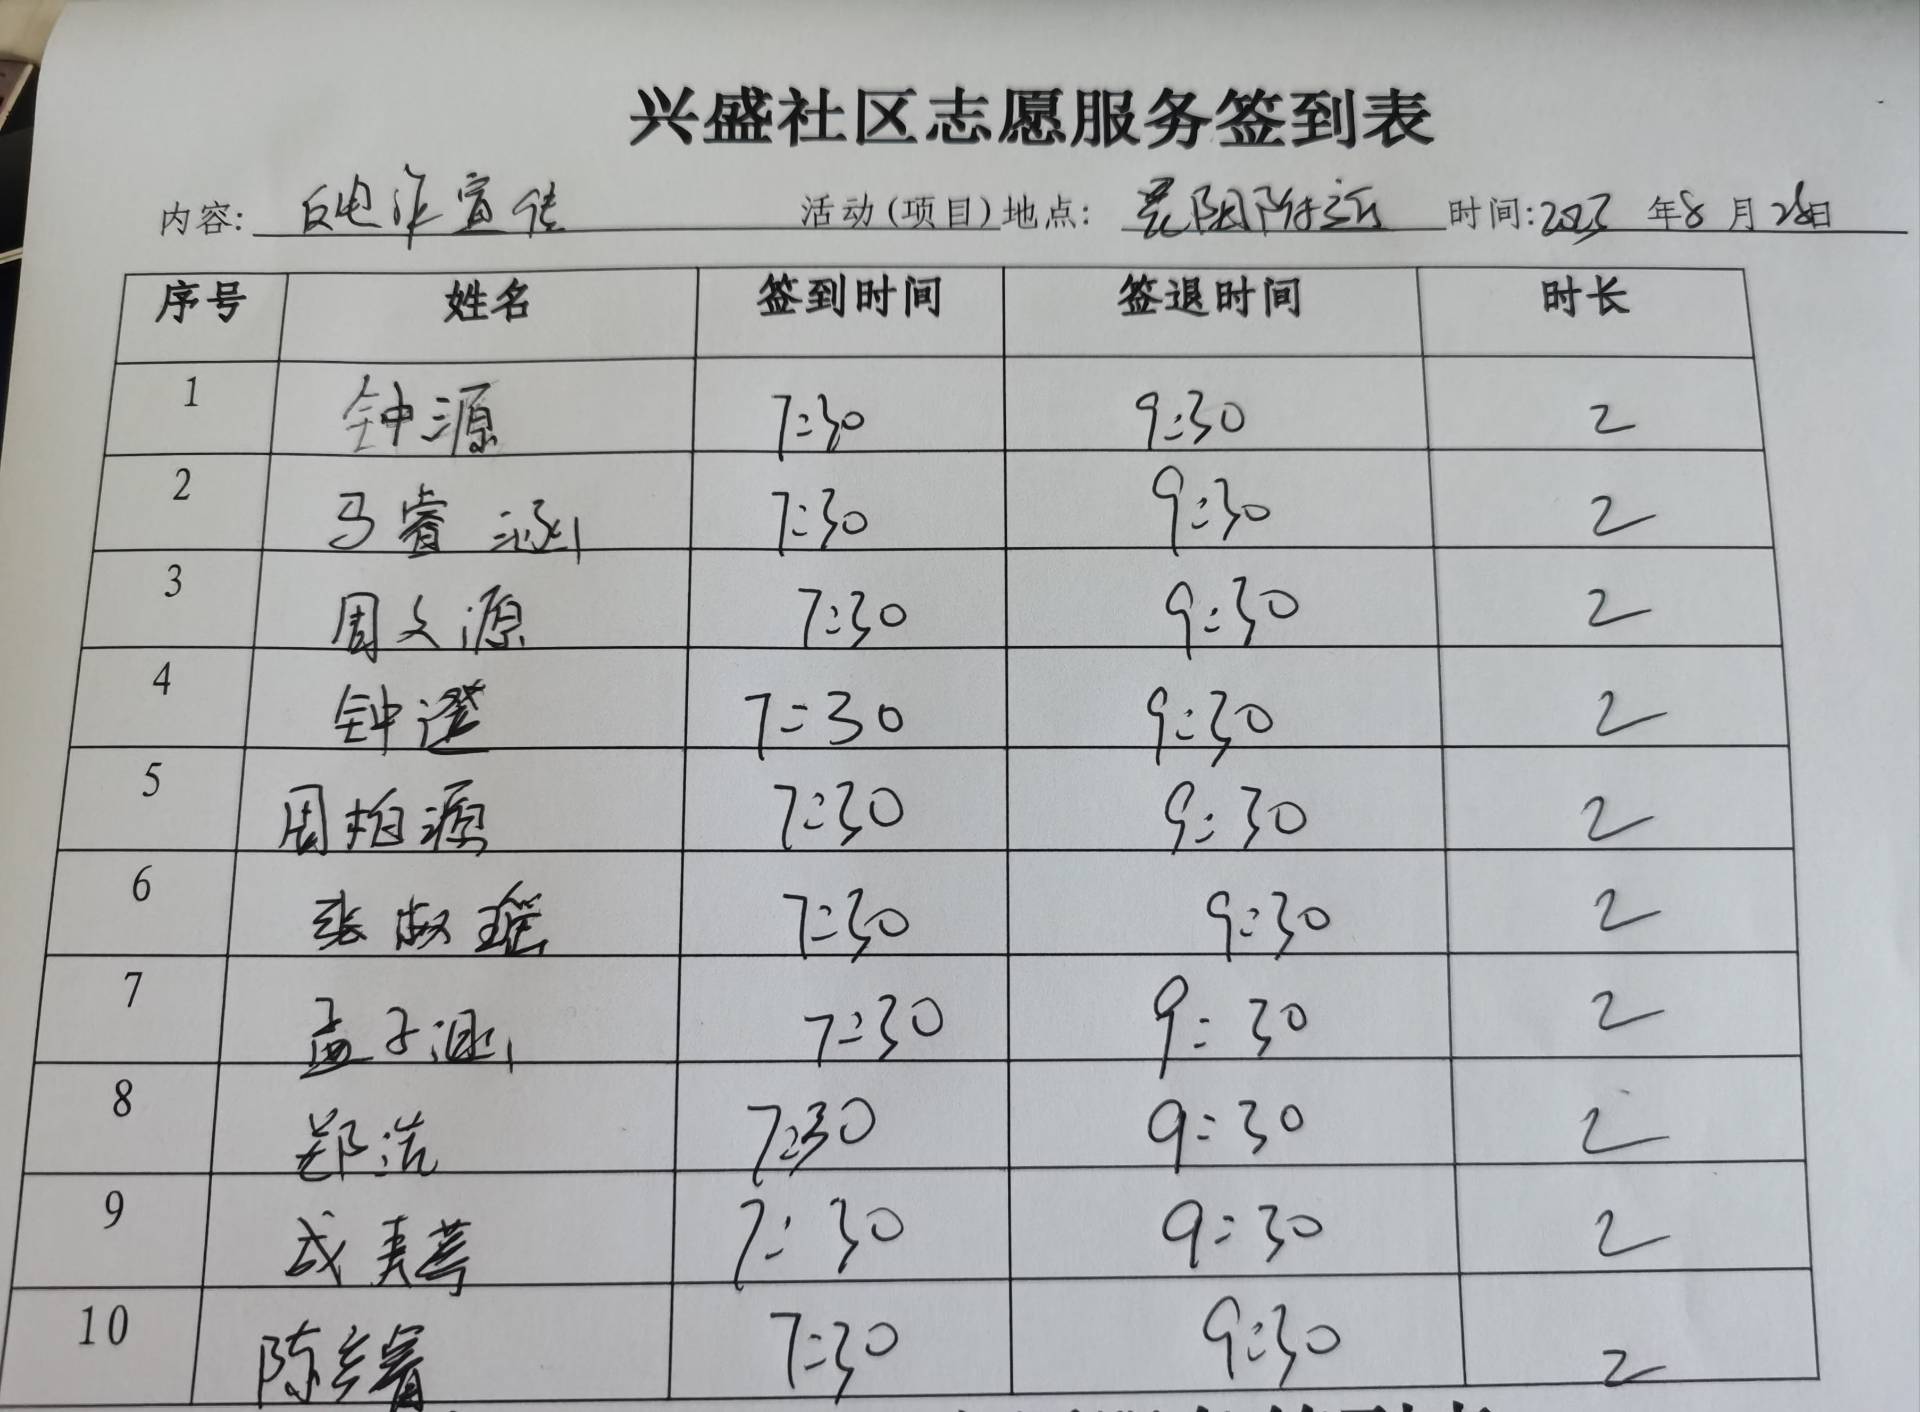 兴盛社区志愿服务签到表
内容: 反电诈宣传 活动(项目)地点: 昆阳附近 时间:2023年8月28日
序号 姓名 签到时间 签退时间 时长
1 钟源 7:30 9:30 2
2 马睿涵 7:30 9:30 2
3 周文源 7:30 9:30 2
4 钟澄 7:30 9:30 2
5 周柏源 7:30 9:30 2
6 张淑瑶 7:30 9:30 2
7 孟子涵 7:30 9:30 2
8 郑浩 7:30 9:30 2
9 成 7:30 9:30 2
10 陈 睿 7:30 9:30 2